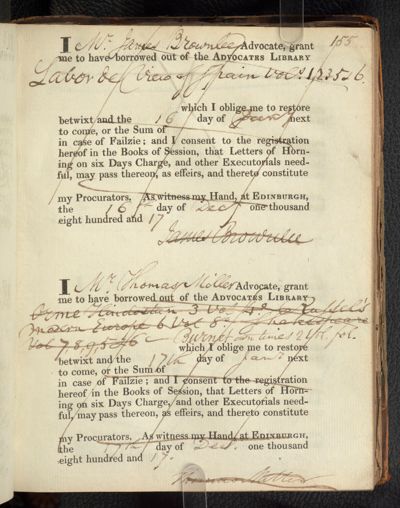 155
I Mr. James Brownlee Advocate, grant
me to have borrowed out of the ADVOCATES LIBRARY
Laborde View of Spain Vols 1,2,3,5,6
which I oblige me to restore
betwixt and the 16 day of Jany next
to come, or the Sum of
in case of Failzie; and I consent to the registration
hereof in the Books of Session, that Letters of Horn-
ing on six Days Charge, and other Executorials need-
ful, may pass thereon, as effeirs, and thereto constitute
my Procurators. As witness my Hand, at EDINBURGH,
the 16 day of Decr. one thousand
eight hundred and 17
James Brownlee
I Mr. Thomas Miller Advocate, grant
me to have borrowed out of the ADVOCATES LIBRARY
Orme Hindostan 3 Vol Russel's
modern Europe 6 Vol 8vo Shakespeare
Vol 7, 8, 9, 5, 6 Burnet own times 2 Vol. fol.
which I oblige me to restore
betwixt and the 17th day of Jany next
to come, or the Sum of
in case of Failzie; and I consent to the registration
hereof in the Books of Session, that Letters of Horn-
ing on six Days Charge, and other Executorials need-
ful, may pass thereon, as effeirs, and thereto constitute
my Procurators. As witness my Hand, at EDINBURGH,
the 17th day of Decr. one thousand
eight hundred and 17.
Thomas Miller